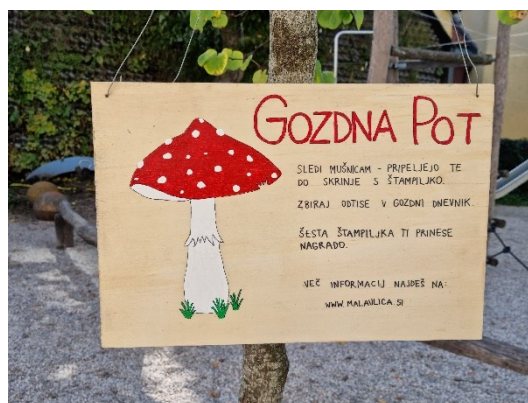 GOZDNA POT
SLEDI MUŠNICAM - PRIPELJEJO TE
DO SKRINJE S ŠTAMPILJKO.
ZBIRAJ ODTISE V GOZDNI DNEVNIK.
ŠESTA ŠTAMPILJKA TI PRINESE
NAGRADO.
VEČ INFORMACIJ NAJDEŠ NA:
WWW.MALAULICA.SI